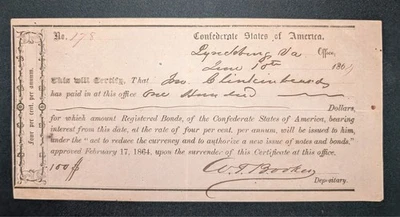 No. 178 Confederate States of America.
Lynchburg Va Office,
June 10th 1864
This will Certify, That Jno. Clinkinbeard
has paid in at this office One Hundred
Dollars,
for which amount Registered Bonds, of the Confederate States of America, bearing
interest from this date, at the rate of four per cent. per annum, will be issued to him,
under the "act to reduce the currency and to authorize a new issue of notes and bonds,"
approved February 17, 1864, upon the surrender of this Certificate at this office.
$100
Depositary.
Four per cent. per annum.